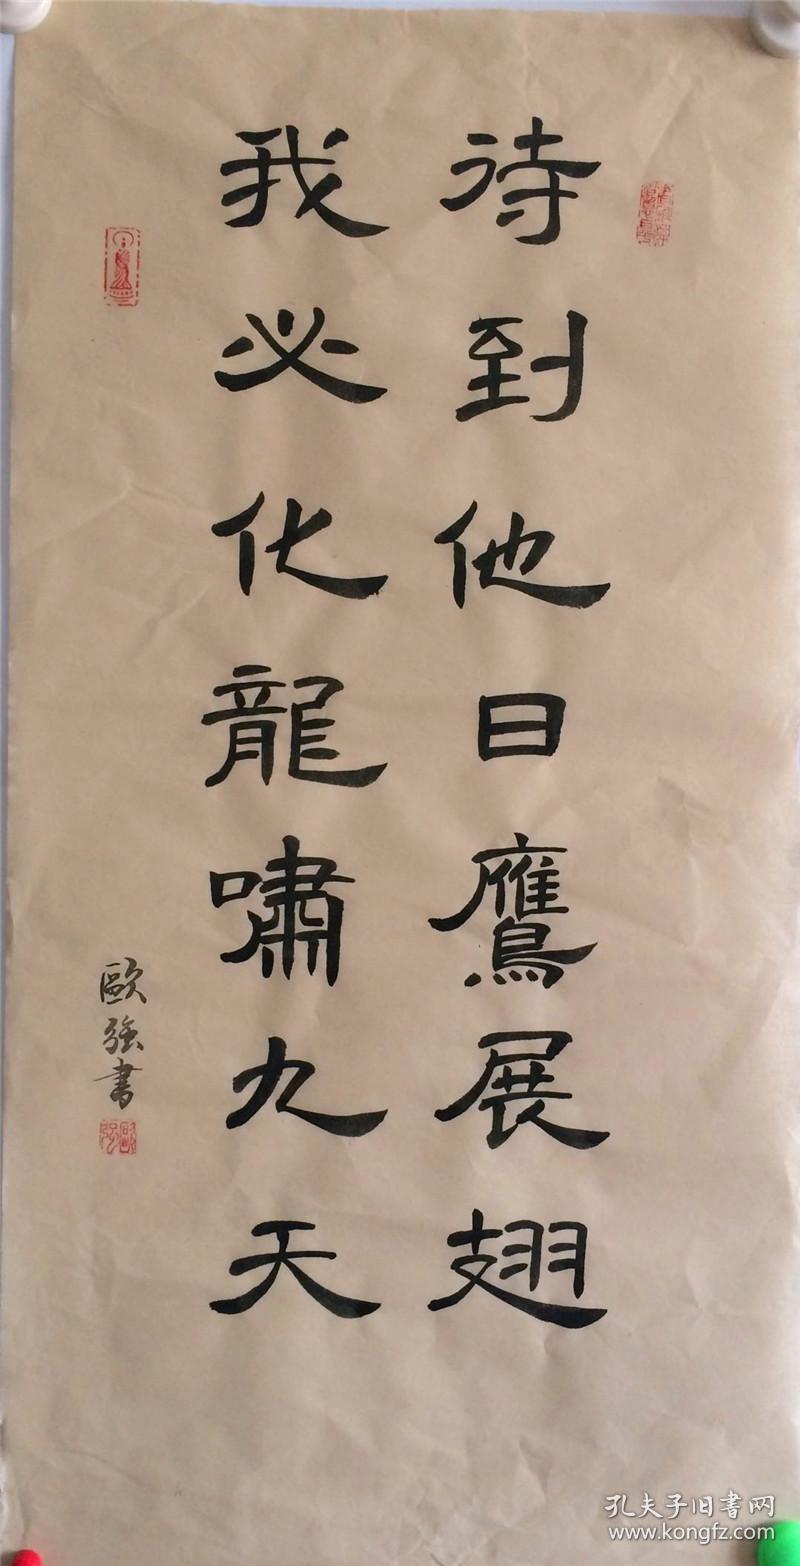 待到他日鷹展翅
我必化龍嘯九天
歐強書
孔夫子旧书网
www.kongfz.com